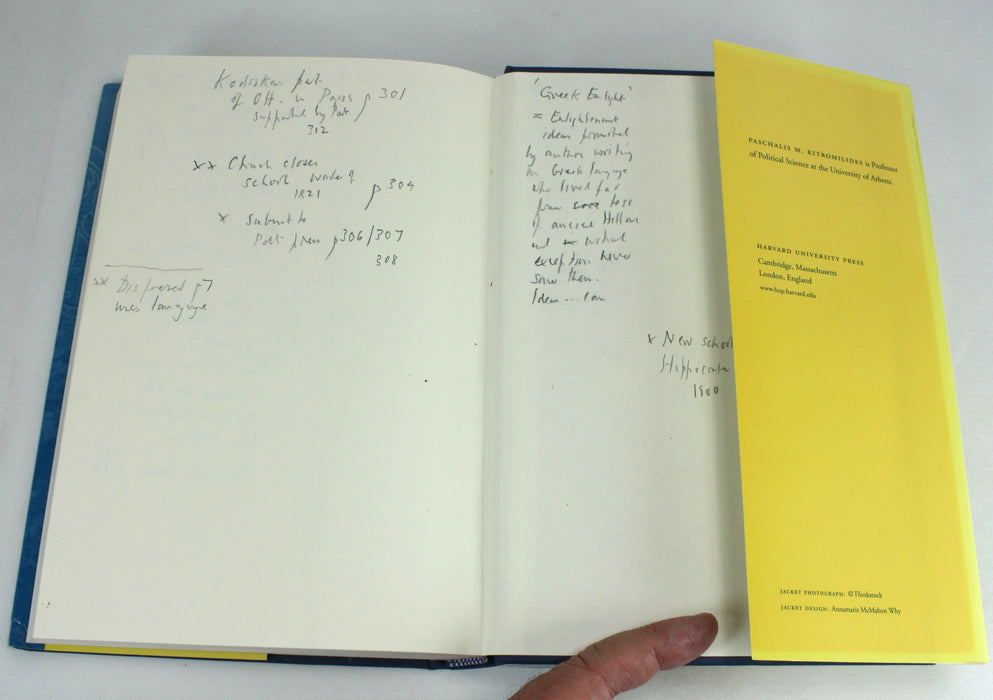 of Off. in Paris p 301
supported by Pat.
312
xx Church closes
school
1821
p 304
x submit to
p306/307
308
xx Dispersed p7
uses language
'Greek Enlight'
= Enlightenment
ideas promoted
by author writing
in Greek language
who lived far
from
of ancient Hellas
and
exception never
saw them.
Ideas ... can
x New school
1800
PASCHALIS M. KITROMILIDES is Professor
of Political Science at the University of Athens.
HARVARD UNIVERSITY PRESS
Cambridge, Massachusetts
London, England
www.hup.harvard.edu
JACKET PHOTOGRAPH: ©Thinkstock
JACKET DESIGN: Annamarie McMahon Why